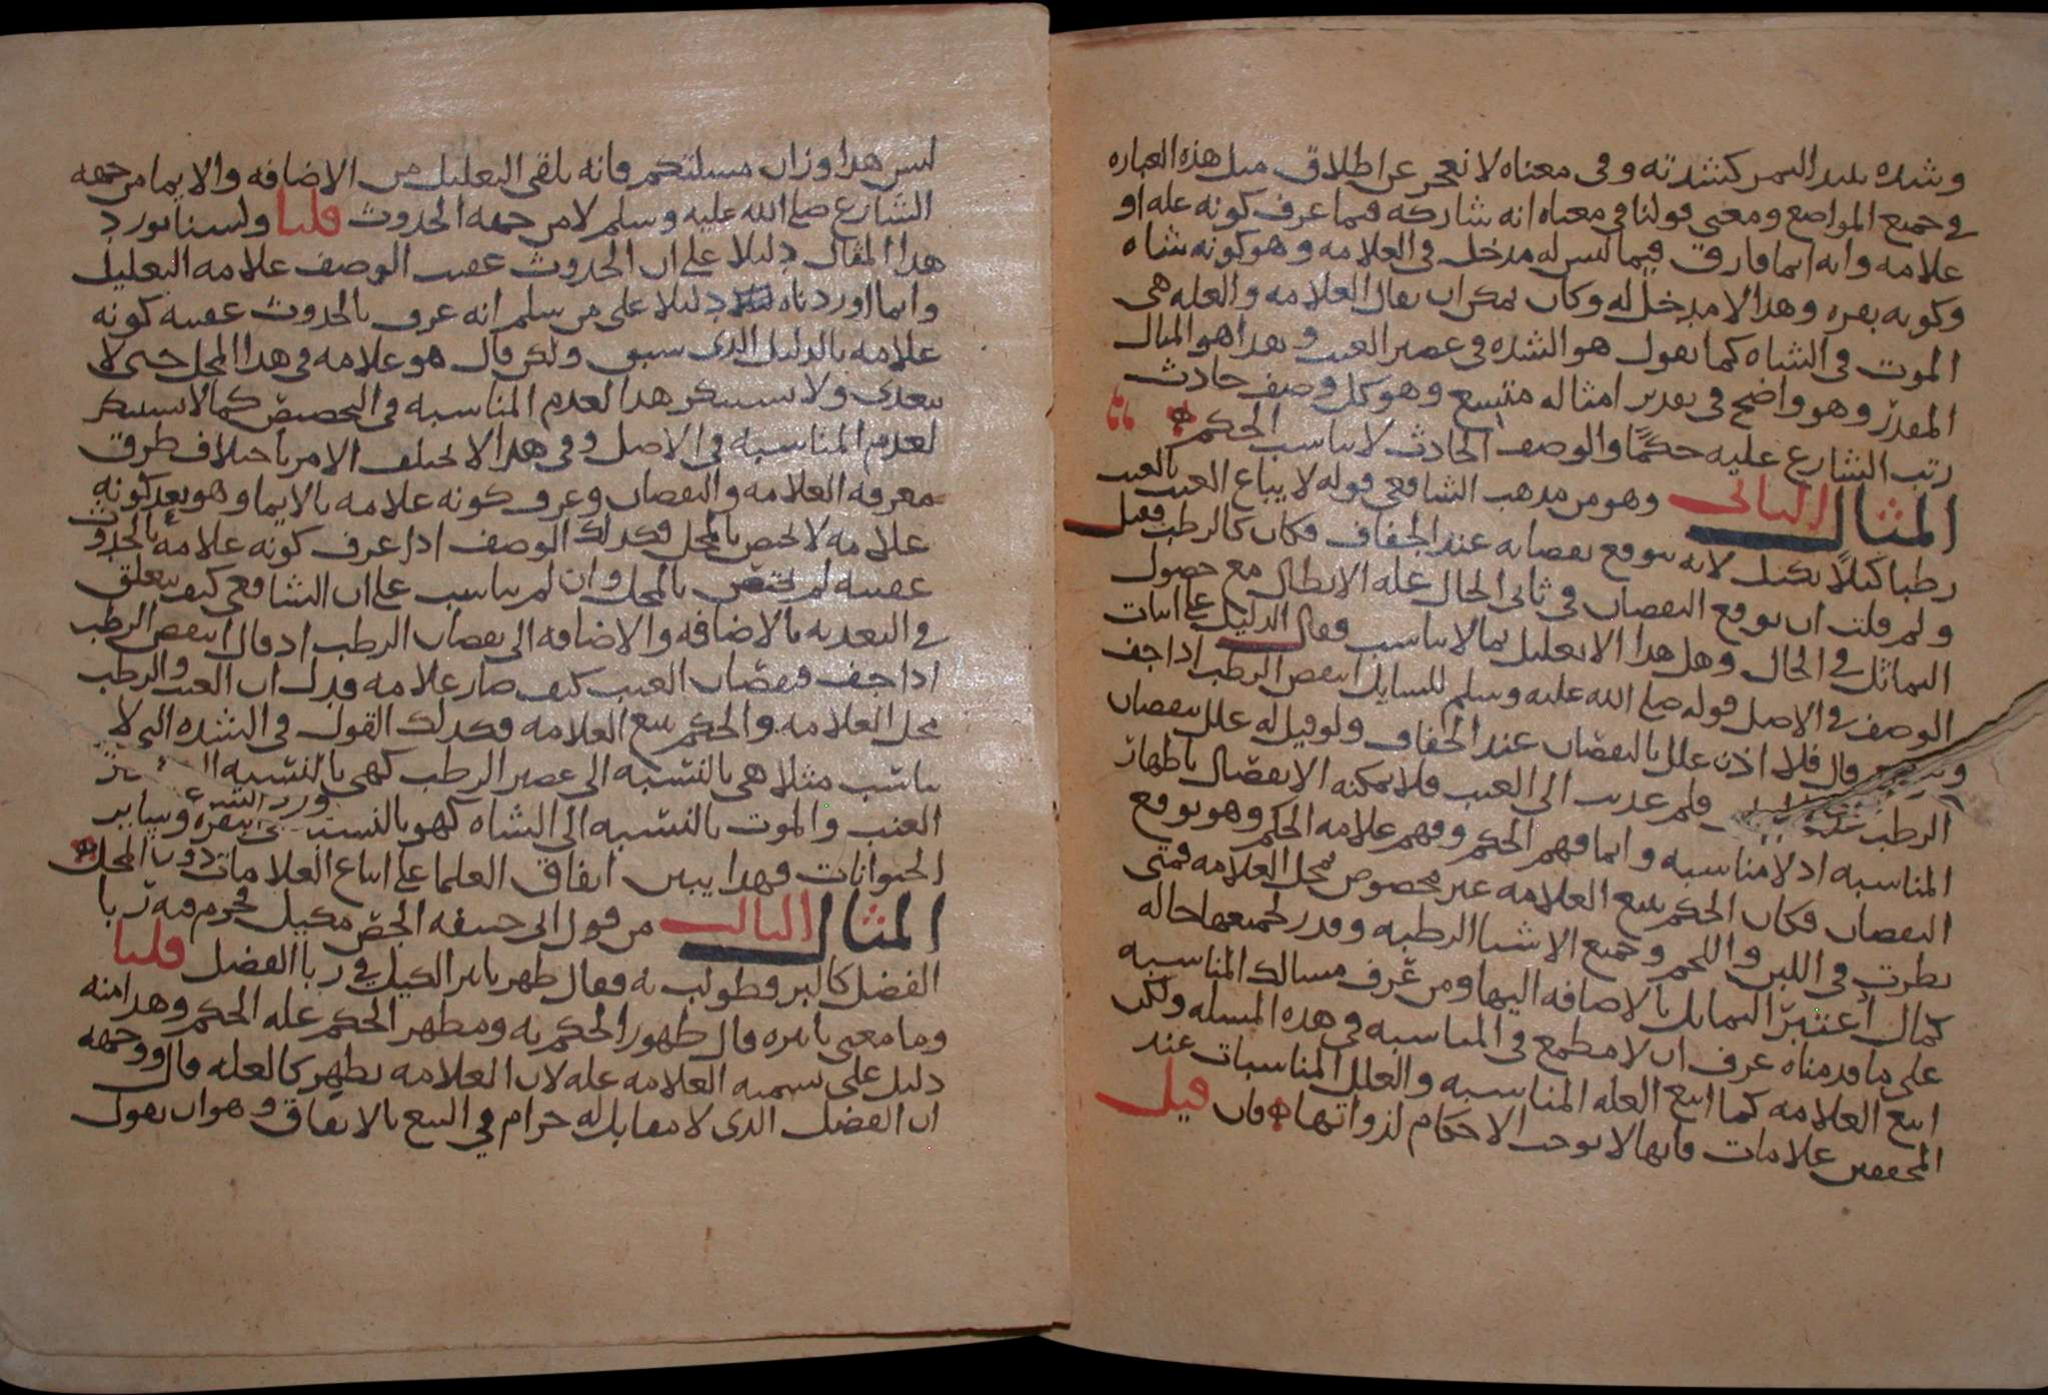 وشده نبيد التمر كشدته وفي معناه لا نعجز عن اطلاق مثل هذه العباره
في جميع المواضع ومعنى قولنا في معناه انه شاركه فيما عرف كونه عله او
علامه وانه انما فارق فيما ليس له مدخل في العلامه وهو كونه شاه
وكونه بقره وهذا لا مدخل له وكان يمكن ان يقال العلامه والعله هي
الموت في الشاه كما يقول هو الشده في عصير العنب وبهذا هو المثال
المقدر وهو واضح في تقدير امثاله متسع وهو كل وصف حادث
رتب الشارع عليه حكمًا والوصف الحادث لا يناسب الحكم
المثال الثاني وهو من مذهب الشافعي قوله لا يباع العنب بالعنب
رطبا كيلًا بكيل لانه يتوقع نقصانه عند الجفاف فكان كالرطب فقيل
ولم قلت ان توقع النقصان في ثاني الحال عله الابطال مع حصول
التماثل في الحال وهل هذا الا تعليل بما لا يناسب فقال الدليل على اثبات
الوصف في الاصل قوله صلى الله عليه وسلم للسايل اينقص الرطب اذا جف
قال فلا اذن علل بالنقصان عند الجفاف ولو قيل له علل بنقصان
الرطب فلم عديت الى العنب فلا يمكنه الانفصال باظهار
المناسبه اذ لا مناسبه وانما فهم الحكم وفهم علامه الحكم وهو توقع
النقصان فكان الحكم يتبع العلامه غير مخصوص بمحل العلامه فمتى
نظرت في اللبن واللحم وجميع الاشيا الرطبه وقدر لجميعها حاله
كمال اعتبر التماثل بالاضافه اليها ومن عرف مسالك المناسبه
على ما قدمناه عرف ان لا مطمع في المناسبه في هذه المسله ولكن
اتبع العلامه كما اتبع العله المناسبه والعلل المناسبات عند
المحققين علامات فانها لا توجب الاحكام لذواتها فان قيل
ليس هذا وزان مسلتكم فانه تلقى التعليل من الاضافه والايما من جهه
الشارع صلى الله عليه وسلم لا من جهه الحدوث قلنا ولسنا نورد
هذا المثال دليلا على ان الحدوث عقيب الوصف علامه التعليل
وانما اوردناه دليلا على من سلم انه عرف بالحدوث عقيبه كونه
علامه بالدليل الذي سبق ولكن قال هو علامه في هذا المحل حتى لا
يتعدى ولا يستنكر هذا لعدم المناسبه في التخصيص كما لا يستنكر
لعدم المناسبه في الاصل وفي هذا لا يختلف الامر باختلاف طرق
معرفه العلامه والنقصان وعرف كونه علامه بالايما وهو بعد كونه
علامه لا يختص بالمحل فكذلك الوصف اذا عرف كونه علامه بالحدوث
عقيبه لم يختص بالمحل وان لم يناسب على ان الشافعي كيف يتعلق
في التعديه بالاضافه والاضافه الى نقصان الرطب اذ قال اينقص الرطب
اذا جف فنقصان العنب كيف صار علامه فدل ان العنب والرطب
محل العلامه والحكم يتبع العلامه فكذلك القول في الشده التي لا
يناسب مثلا هي بالنسبه الى عصير الرطب كهي بالنسبه الى
العنب والموت بالنسبه الى الشاه كهو بالنسبه الى البقره وساير
الحيوانات فهذا يبين اتفاق العلما على اتباع العلامات دون المحل
المثال الثالث من قول ابي حنيفه الجص مكيل فحرم فيه ربا
الفضل كالبر فطولب به فقال ظهر تاثير الكيل في ربا الفضل قلنا
وما معنى تاثيره قال ظهور الحكم به ومظهر الحكم عله الحكم وهذا منه
دليل على تسميه العلامه عله لان العلامه يظهر كالعله قال ووجهه
ان الفضل الذي لا مقابل له حرام في البيع بالاتفاق وهو ان يقول